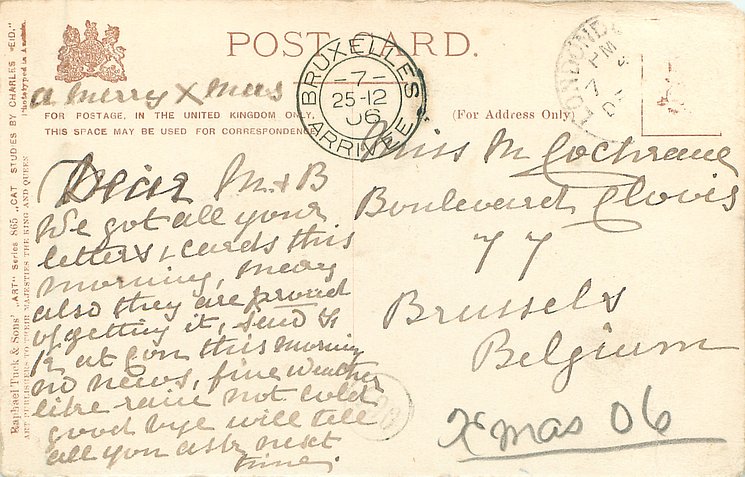 POST CARD.
a merry Xmas
FOR POSTAGE, IN THE UNITED KINGDOM ONLY,
THIS SPACE MAY BE USED FOR CORRESPONDENCE
(For Address Only)
BRUXELLES
-7-
25-12
06
ARRIVEE
LONDON
PM
7
Dear M & B
We got all your
letters & cards this
morning, Mary
also they are proud
of getting it,
at this morning
no news, fine weather
like rain not cold
good bye will tell
all you ask next
time.
Miss M Cochrane
Boulevard Clovis
77
Brussels
Belgium
Xmas 06
Raphael Tuck & Sons' "ART" Series 865 "CAT STUDIES BY CHARLES REID."
ART PUBLISHERS TO THEIR MAJESTIES THE KING AND QUEEN
Phototyped in